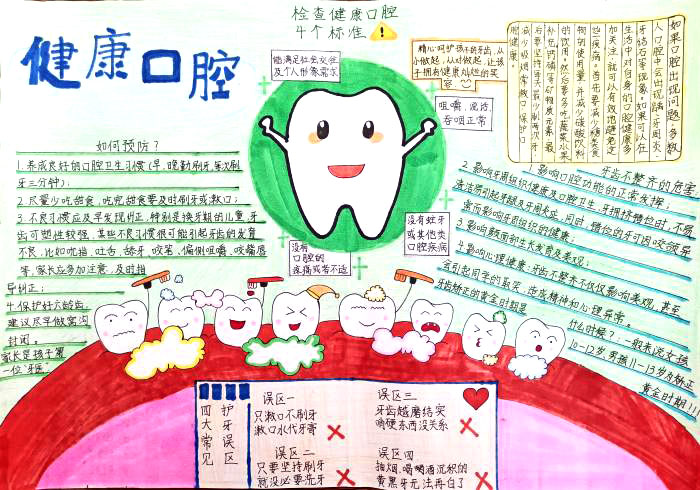 健康口腔
检查健康口腔
4个标准
能满足社会交往
及个人形象需求
咀嚼、说话、
吞咽正常
没有蛀牙
或其他类
口腔疾病
没有
口腔的
疼痛或者不适
精心呵护孩子的牙齿,从
小做起,从对做起,让孩
子拥有健康灿烂的笑
容。
如果口腔出现问题,多数
人口腔中会出现龋、牙周炎、
牙结石等现象,如果可以在
生活中对自身的口腔健康多
加关注,就可以有效地避免这
些疾病。首先要减少糖类食
物的使用量,并减少碳酸饮料
的饮用,然后要多吃蔬菜水果
补充钙磷等矿物质元素,最
后要坚持每天最少刷两次牙
减少吸烟,常漱口,保护口
腔健康。
如何预防?
1.养成良好的口腔卫生习惯(早、晚勤刷牙,每次刷
牙三分钟);
2.尽量少吃甜食,吃完甜食要及时刷牙或漱口;
3.不良习惯应及早发现纠正,特别是换牙期的儿童,牙
齿可塑性较强,某些不良习惯很可能引起牙齿的发育
不良,比如吮指、吐舌、舔牙、咬笔、偏侧咀嚼、咬嘴唇
等,家长应多加注意,及时指
导纠正;
4.保护好六龄齿,
建议尽早做窝沟
封闭。
家长是孩子第
一位“牙医”
牙齿不整齐的危害
1.影响口腔功能的正常发挥;
2.影响牙周组织健康及口腔卫生,牙拥挤错位时,不易
清洁易引起龋腿及牙周炎症,同时,错位的牙可因咬颌异
常而影响牙周组织的健康;
3.影响颜面部生长发育及美观;
4.影响心理健康:牙齿不整齐不仅仅影响美观,甚至
会引起同学的耻笑,造成精神和心理异常。
牙齿矫正的黄金时期是
什么时候?一般来说女孩
10-12岁,男孩11-13岁为矫正
黄金时期!!!
四大常见
护牙误区
误区一
只漱口不刷牙
漱口水代牙膏
误区二
只要坚持刷牙
就没必要洗牙
误区三
牙齿越磨结实
啃硬东西没关系
误区四
抽烟、喝酒沉积的
黄黑牙无法再白了